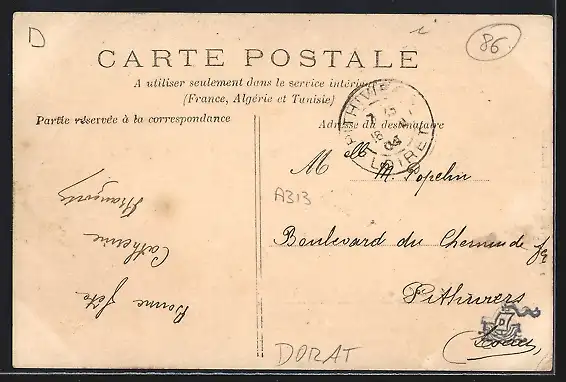 D
86
CARTE POSTALE
A utiliser seulement dans le service intérieur
(France, Algérie et Tunisie)
Partie réservée à la correspondance
Adresse du destinataire
PITHIVIERS
LOIRET
Melle M. Popelin
A313
Boulevard du Chemin de fe
Pithiviers
Loiret
DORAT
Bonne fête
Catherine